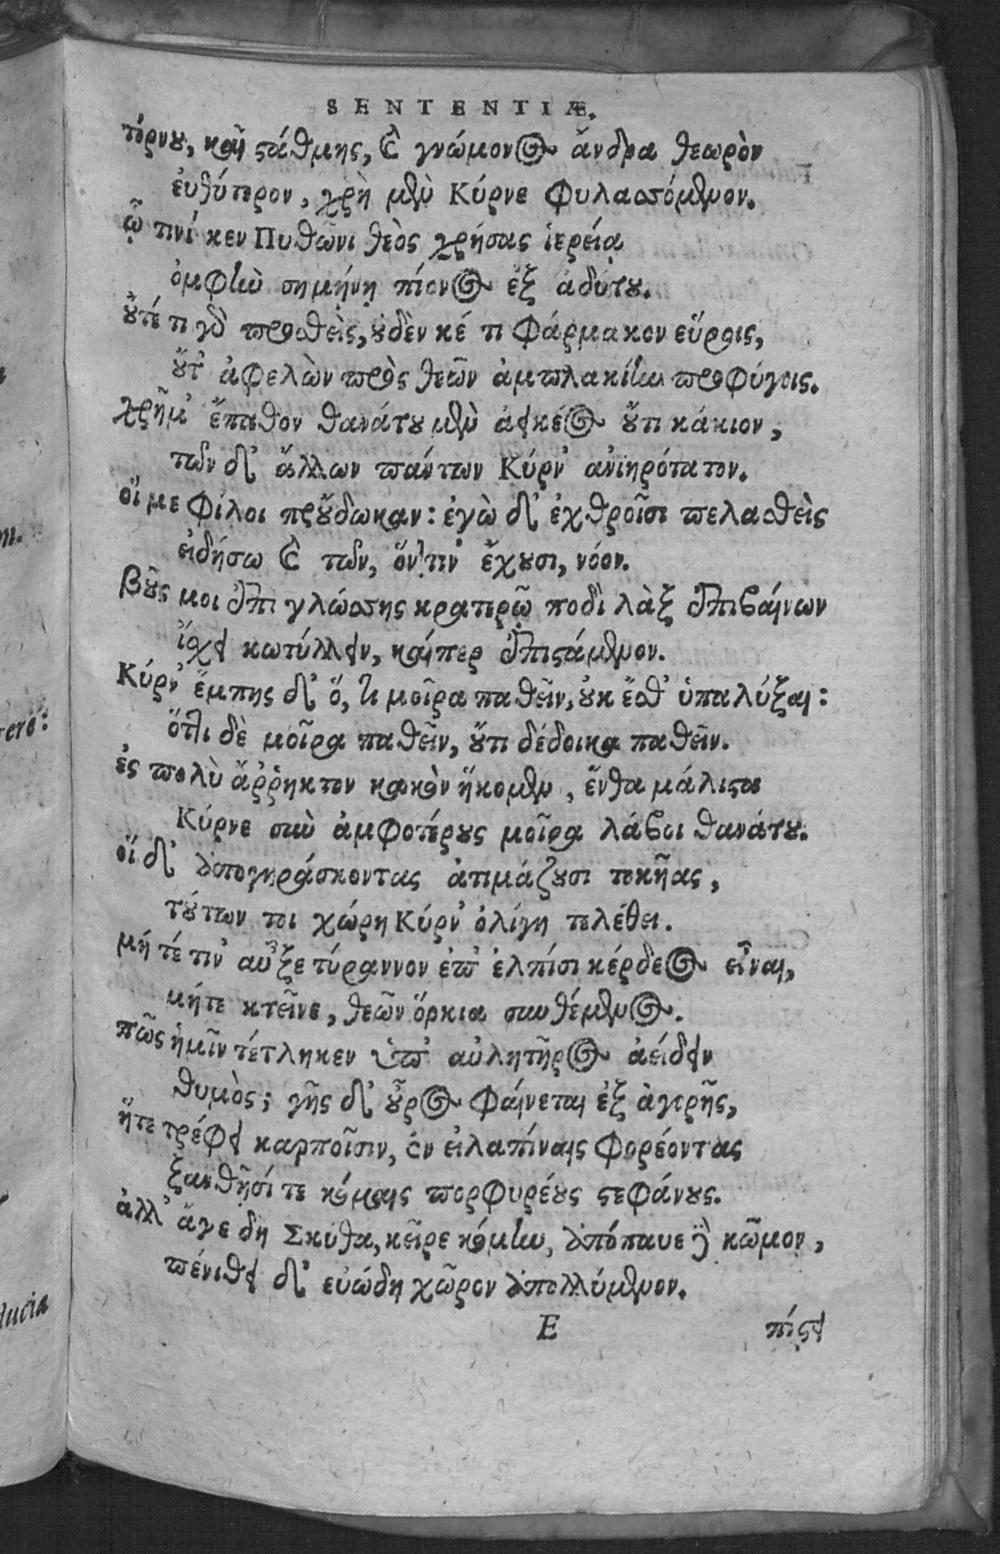 SENTENTIÆ.
τόρνου, καὶ στάθμης, καὶ γνώμονος ἄνδρα θεωρὸν
εὐθύτερον, χρὴ μὲν Κύρνε φυλασσόμενον.
ᾧ τινί κεν Πυθῶνι θεὸς χρήσας ἱερείᾳ
ὀμφὴν σημήνῃ πίονος ἐξ ἀδύτου.
οὔτέ τι γὰρ προσθεὶς, οὐδὲν κέ τι φάρμακον εὕροις,
οὔτ' ἀφελὼν πρὸς θεῶν ἀμπλακίην προφύγοις.
χρῆμ' ἔπαθον θανάτου μὲν ἀεικέος οὔτι κάκιον,
τῶν δ' ἄλλων πάντων Κύρν' ἀνιηρότατον.
οἵ με φίλοι προὔδωκαν: ἐγὼ δ' ἐχθροῖσι πελασθεὶς
εἰδήσω καὶ τῶν, ὅντιν' ἔχουσι, νόον.
βοῦς μοι ἐπὶ γλώσσης κρατερῷ ποδὶ λὰξ ἐπιβαίνων
ἴσχει κωτίλλειν, καίπερ ἐπιστάμενον.
Κύρν' ἔμπης δ' ὅ, τι μοῖρα παθεῖν, οὐκ ἔσθ' ὑπαλύξαι:
ὅττι δὲ μοῖρα παθεῖν, οὔτι δέδοικα παθεῖν.
ἐς πολὺ ἄῤῥηκτον κακὸν ἥκομεν, ἔνθα μάλιστα
Κύρνε σὺν ἀμφοτέρους μοῖρα λάβοι θανάτου.
οἵ δ' ἀπογηράσκοντας ἀτιμάζουσι τοκῆας,
τούτων τοι χώρη Κύρν' ὀλίγη τελέθει.
μήτέ τιν' αὖξε τύραννον ἐπ' ἐλπίσι κέρδεος εἶναι,
μήτε κτεῖνε, θεῶν ὅρκια συνθέμενος.
πῶς ἡμῖν τέτληκεν ὑπ' αὐλητῆρος ἀείδειν
θυμὸς; γῆς δ' οὖρος φαίνεται ἐξ ἀγορῆς,
ἥτε τρέφει καρποῖσιν, ἐν εἰλαπίναις φορέοντας
ξανθῇσί τε κόμαις πορφυρέους στεφάνους.
ἀλλ' ἄγε δὴ Σκύθα, κεῖρε κόμην, ἀπόπαυε δὲ κῶμον,
πένθει δ' εὐώδη χῶρον ἀπολλύμενον.
E πίστει